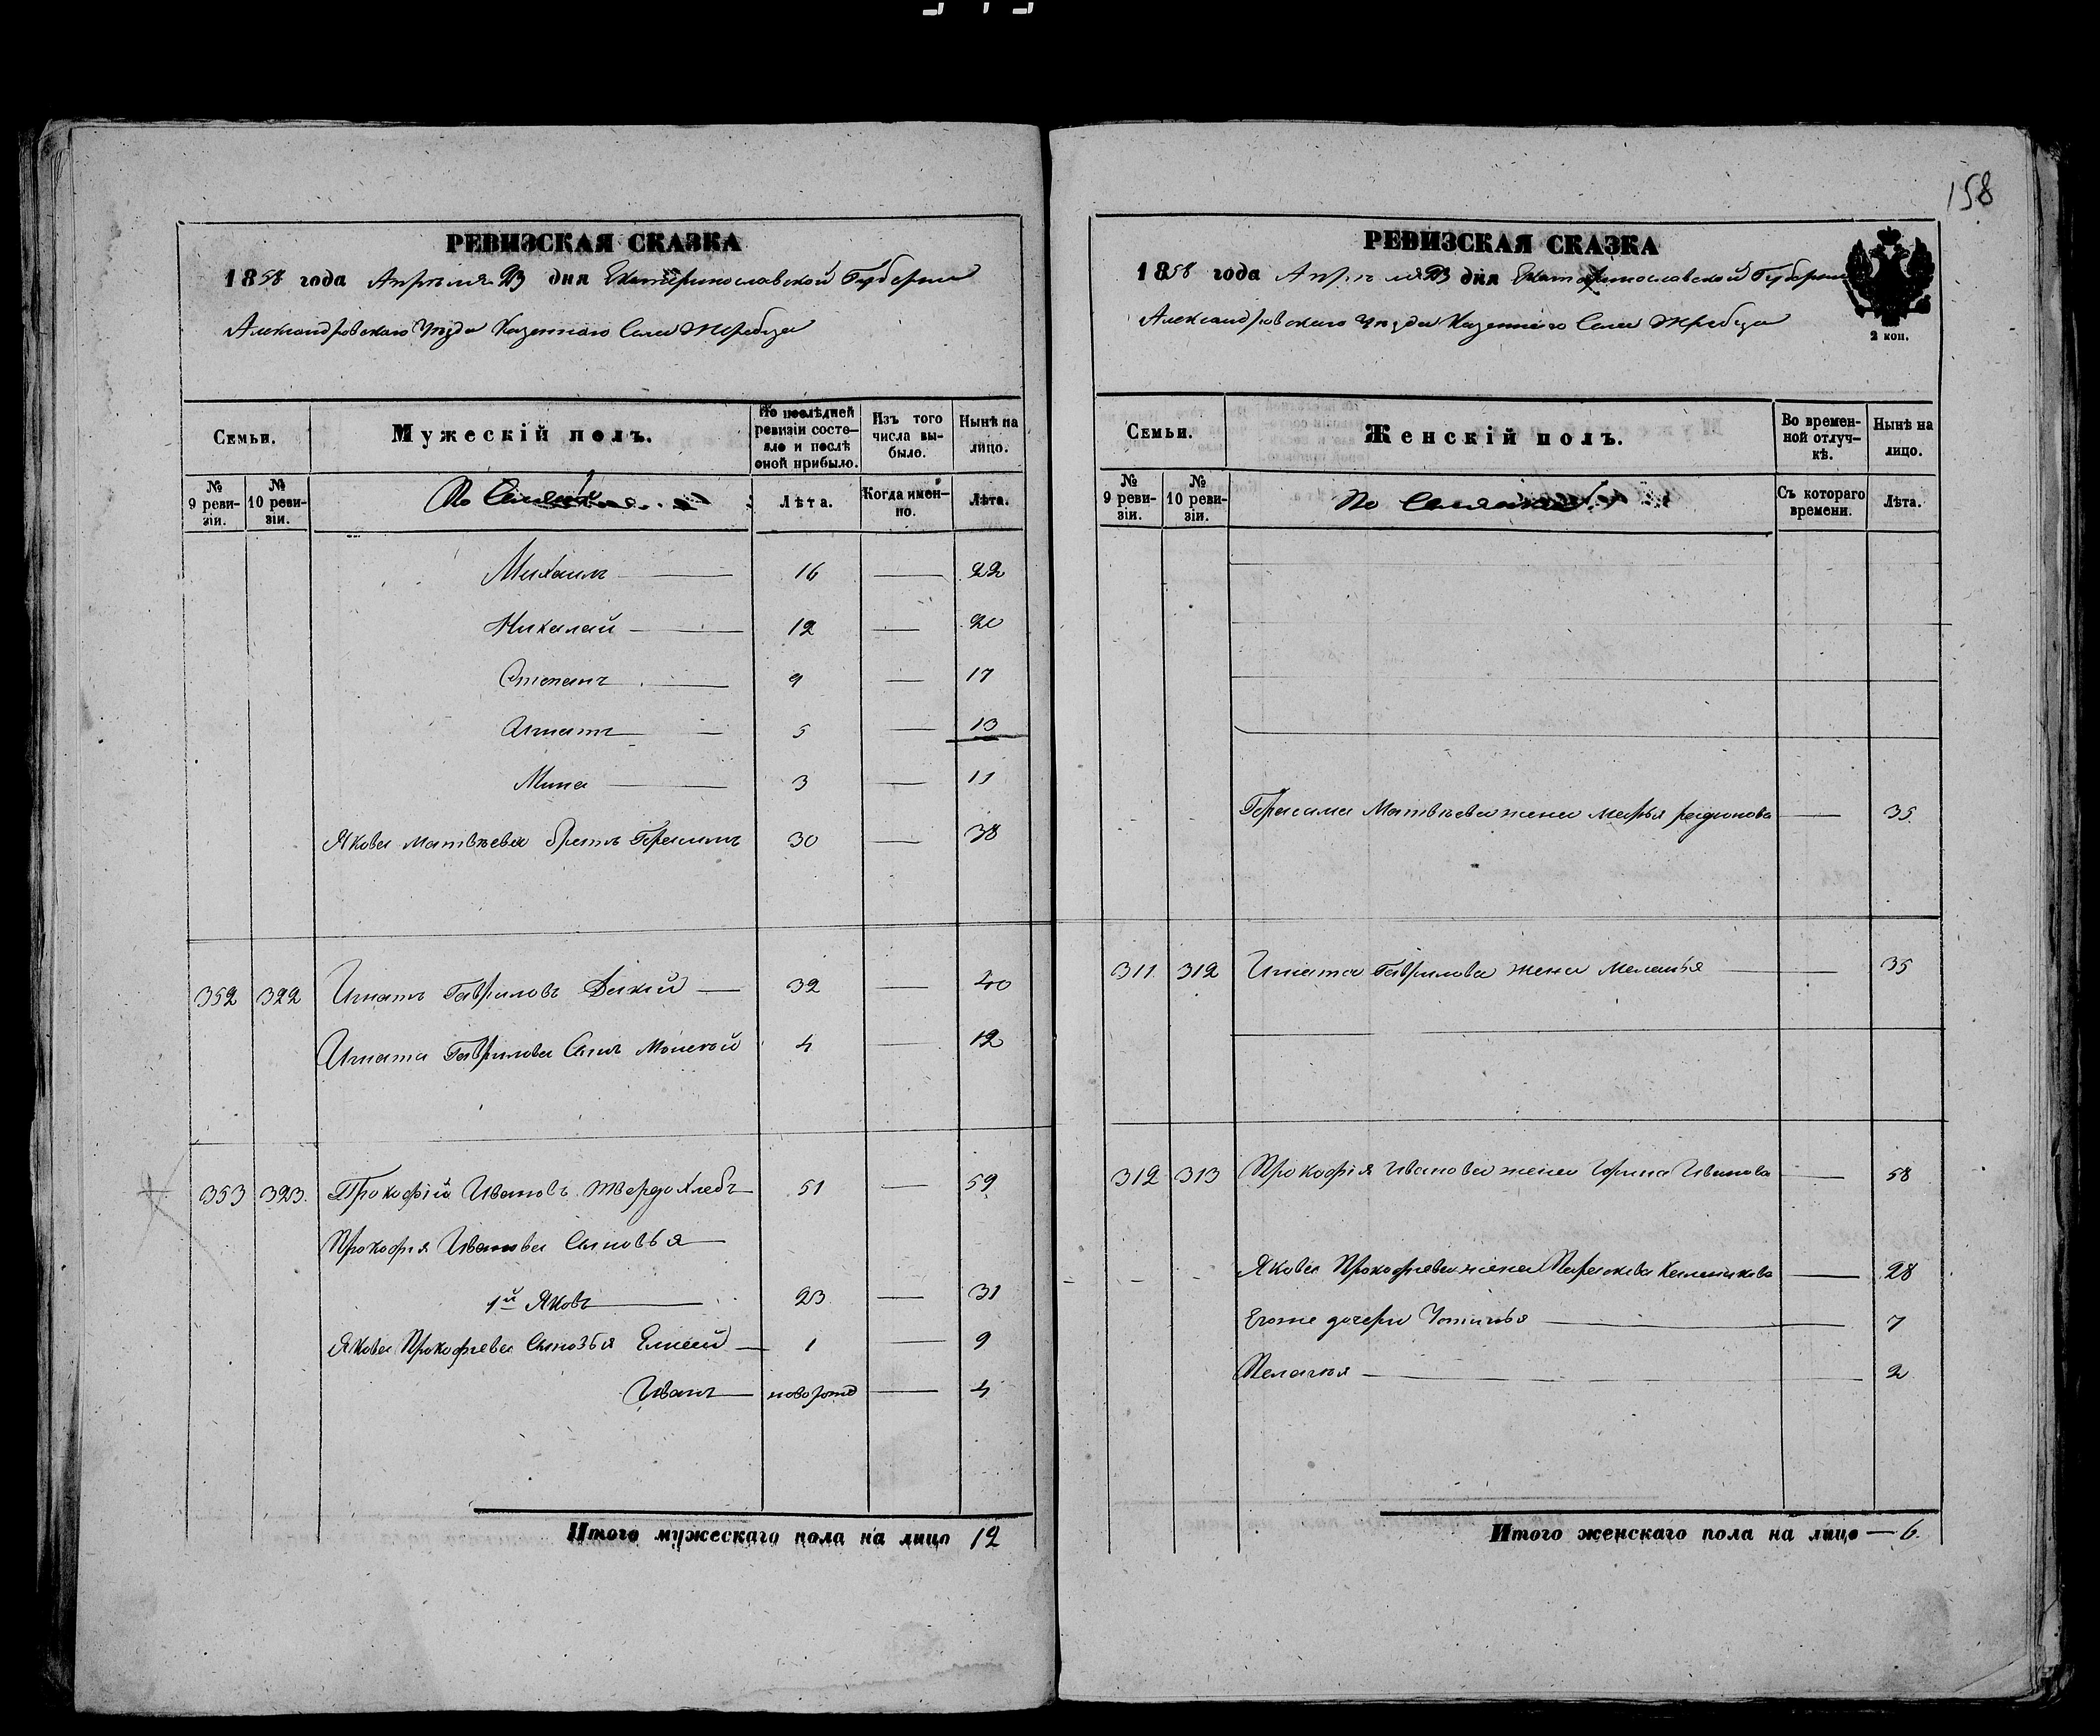 158
РЕВИЗСКАЯ СКАЗКА
1858 года Апреля 23 дня Екатеринославской Губернии
Александровскаго Уезда Казеннаго Села Жеребца
Семьи.
Мужескій полъ.
По послѣдней ревизіи состояло и послѣ оной прибыло.
Изъ того числа выбыло.
Нынѣ на лицо.
№ 9 ревизіи.
№ 10 ревизіи.
Лѣта.
Когда именно.
Лѣта.
Михаилъ 16 — 22
Николай 12 — 20
Степанъ 9 — 17
Игнатъ 5 — 13
Мина 3 — 11
Якова Матвѣева братъ Герасимъ 30 — 38
352 322 Игнатъ Гавриловъ Дикий 32 — 40
Игната Гаврилова Сынъ 4 — 12
353 323. Прокофій Ивановъ Твердохлебъ 51 — 59
Прокофія Иванова Сыновья
1й Яковъ 23 — 31
Якова Прокофьева Сыновья Елисей 1 — 9
Иванъ новорожд — 4
Итого мужескаго пола на лицо 12
РЕВИЗСКАЯ СКАЗКА
1858 года Апреля 23 дня Екатеринославской Губернии
Александровскаго Уезда Казеннаго Села Жеребца
2 коп.
Семьи.
Женскій полъ.
Во временной отлучкѣ.
Нынѣ на лицо.
№ 9 ревизіи.
№ 10 ревизіи.
Съ котораго времени.
Лѣта.
Герасима Матвѣева жена Марья Радионова — 35
311 312 Игната Гаврилова жена Меланья — 35
312 313 Прокофія Иванова жена Ирина Иванова — 58
Якова Прокофьева жена Параскева — 28
Егоже дочери Устинья — 7
Пелагия — 2
Итого женскаго пола на лицо — 6.